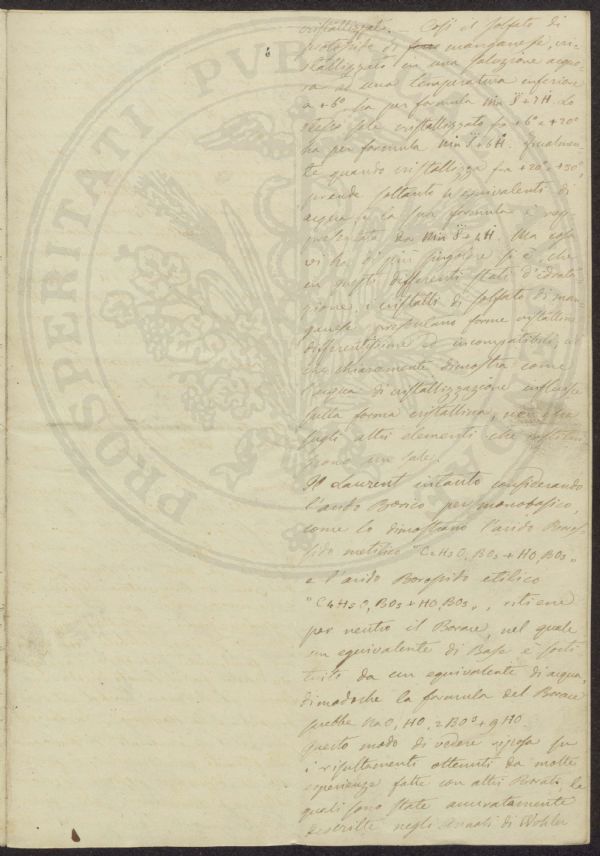 cristallizzati. Così il solfato di
protossido di manganese, cri-
stallizzato in una soluzione acquo-
sa ad una temperatura inferiore
a +6° ha per formula Mn S̈ + 7Ḣ. Lo
stesso sale cristallizzato fra +6° e +20°
ha per formula Mn S̈ + 5Ḣ. Egualmen-
te quando cristallizza fra +20° e +30°,
prende soltanto 4 equivalenti di
acqua e la sua formula è rap-
presentata da Mn S̈ + 4Ḣ. Ma cosa
vi ha di più singolare si è, che
in questi differenti stati d'idrata-
zione, i cristalli di solfato di man-
ganese presentano forme cristalline
differentissime ed incompatibili, il
che chiaramente dimostra come
l'acqua di cristallizzazione influisse
sulla forma cristallina, non
sugli altri elementi che costitui-
scono un sale.
Il Laurent intanto considerando
l'acido Borico per monobasico,
come lo dimostrano l'acido Boros-
sido metilico "C₂H₃O, BO₃ + HO, BO₃"
e l'acido Borossido etilico
"C₄H₅O, BO₃ + HO, BO₃", ritiene
per neutro il Borace, nel quale
un equivalente di Base è sosti
tuito da un equivalente di acqua,
dimodoche la formula del Borace
sarebbe NaO, HO, 2BO³ + 9HO.
Questo modo di vedere riposa su
i risultamenti ottenuti da molte
esperienze fatte con altri Borati, le
quali sono state accuratamente
descritte negli Annali di Wohler
PROSPERITATI PUBLICAE